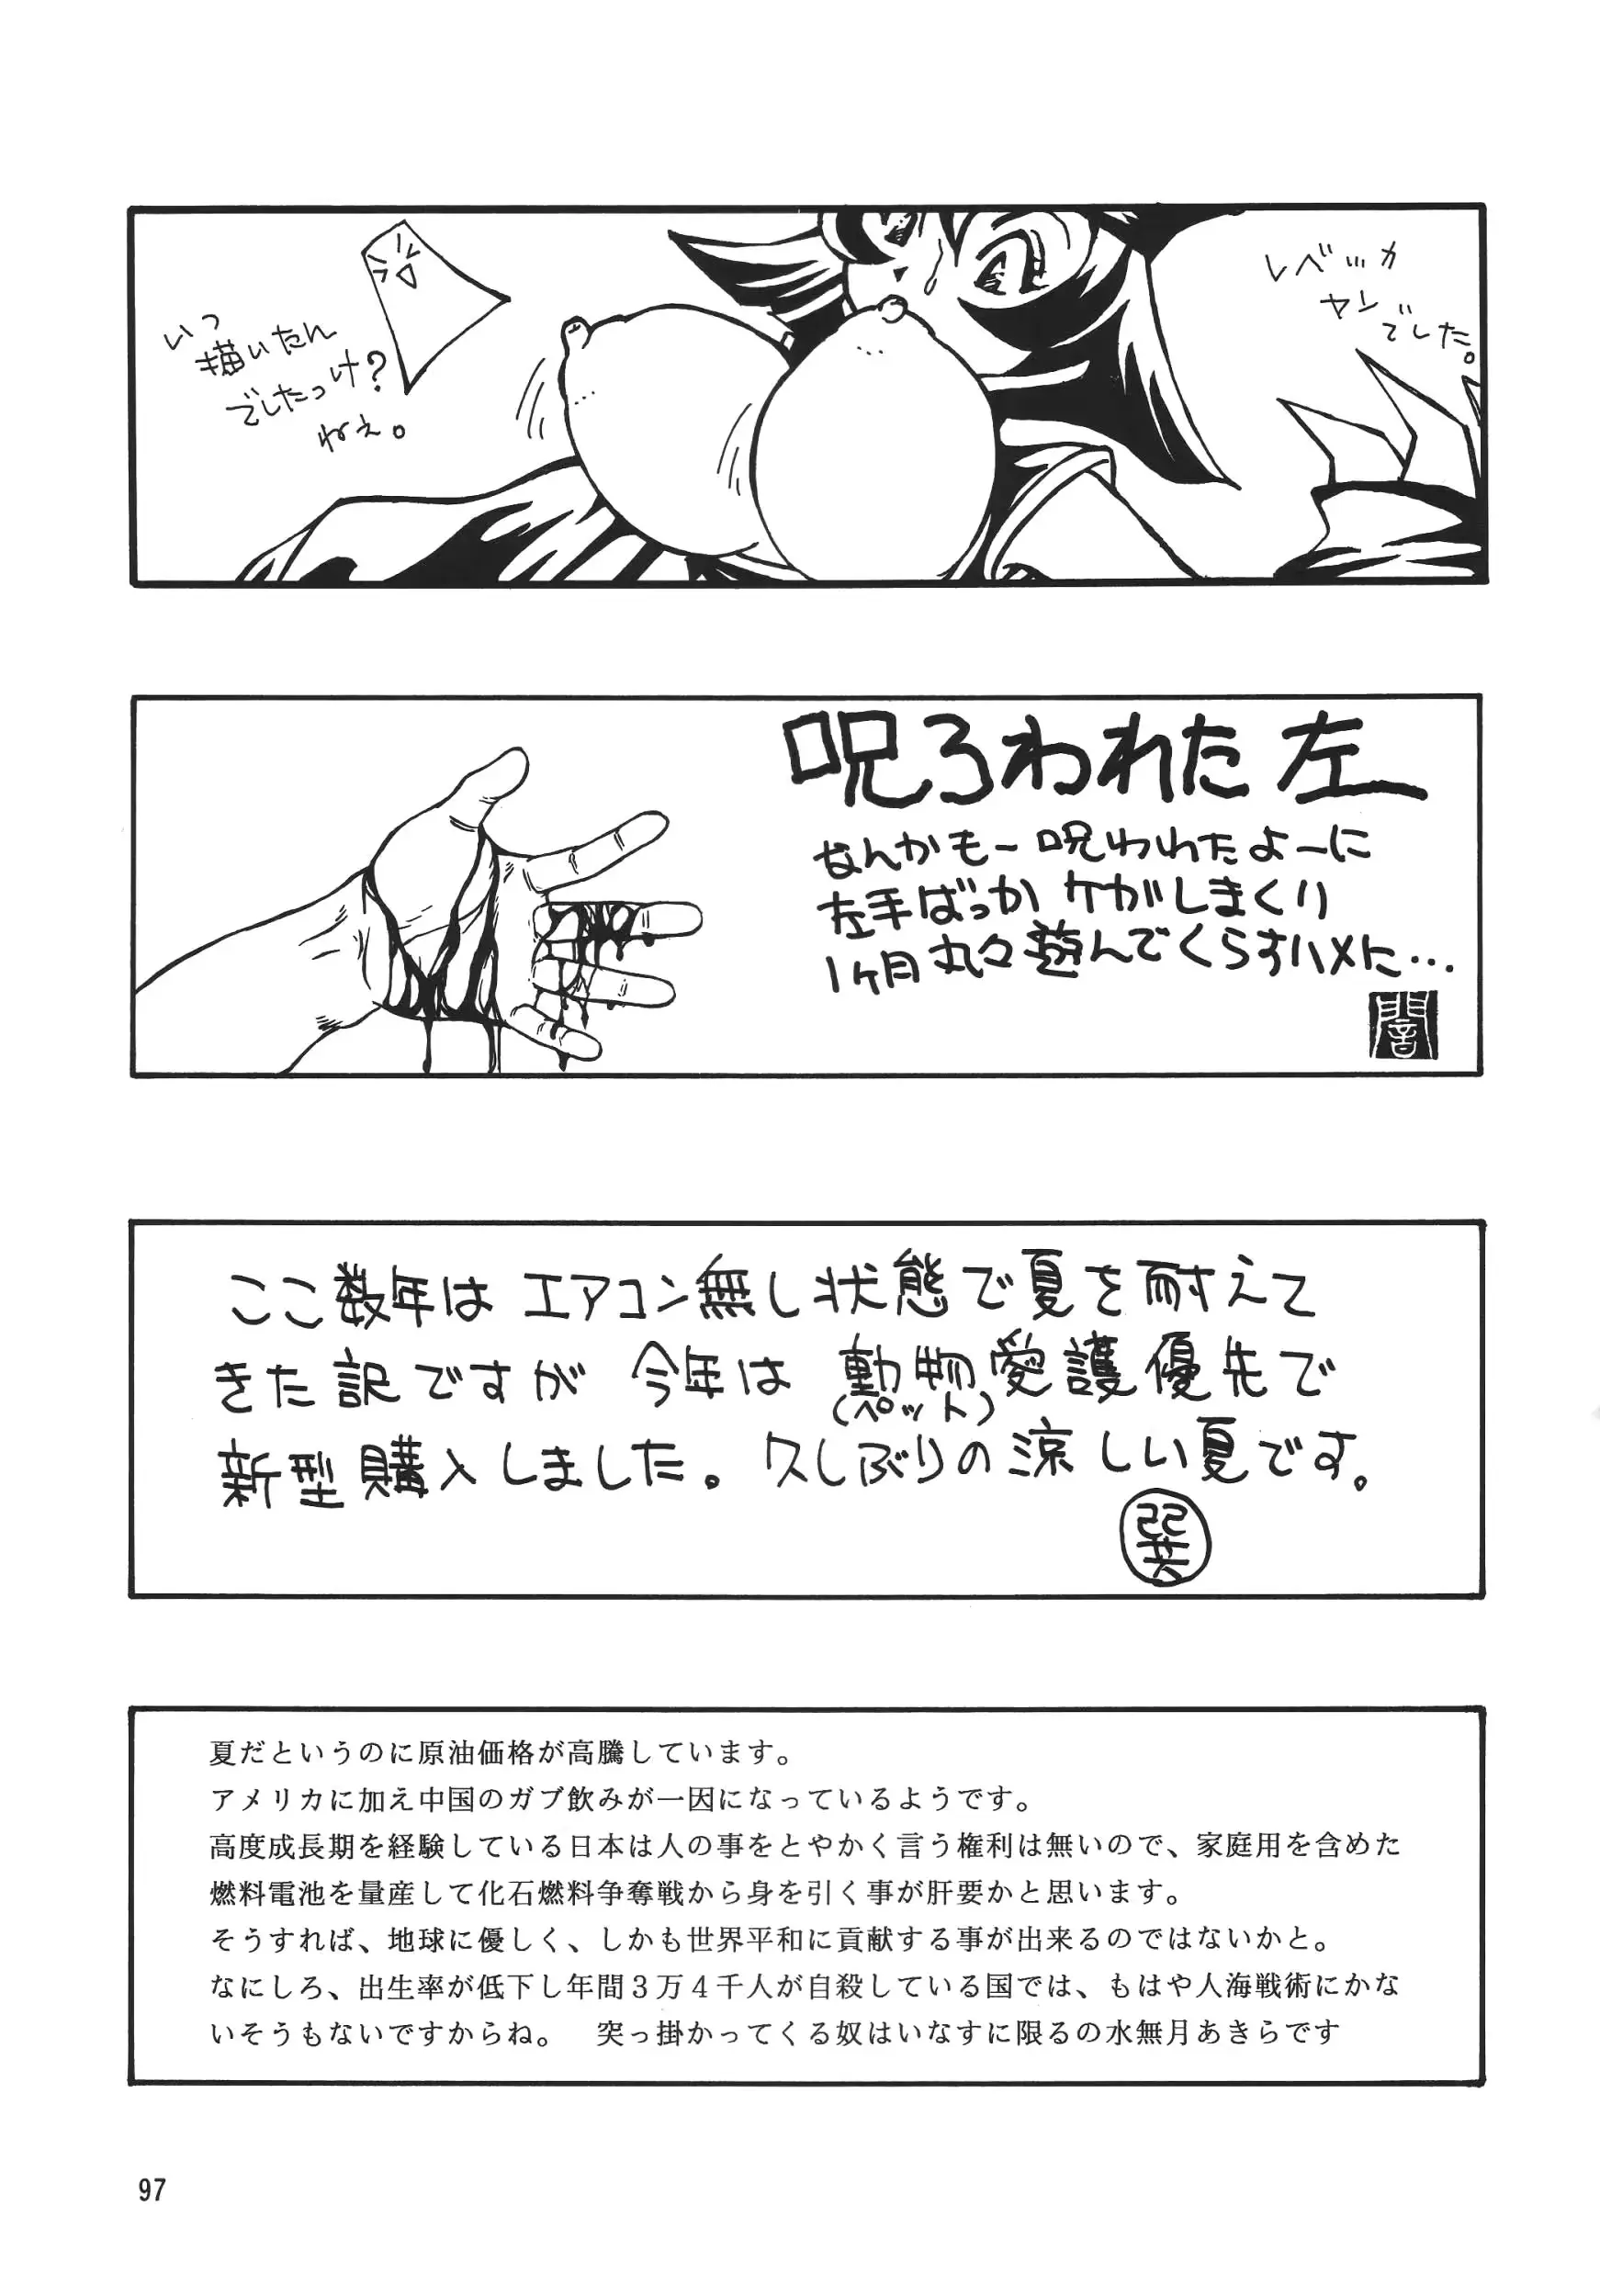 いつ
描いたん
でしたっけ?
ねぇ。
レベッカ
ヤンデ
でした。
呪ろわれた左
なんかもー呪われたよーに
左手ばっかケガしまくり
1ヶ月丸々遊んでくらすハメに…
闇
ここ数年はエアコン無し状態で夏を耐えて
きた訳ですが今年は動物愛護優先で
(ペット)
新型購入しました。久しぶりの涼しい夏です。
巽
夏だというのに原油価格が高騰しています。
アメリカに加え中国のガブ飲みが一因になっているようです。
高度成長期を経験している日本は人の事をとやかく言う権利は無いので、家庭用を含めた
燃料電池を量産して化石燃料争奪戦から身を引く事が肝要かと思います。
そうすれば、地球に優しく、しかも世界平和に貢献する事が出来るのではないかと。
なにしろ、出生率が低下し年間3万4千人が自殺している国では、もはや人海戦術にかな
いそうもないですからね。　突っ掛かってくる奴はいなすに限るの水無月あきらです
97